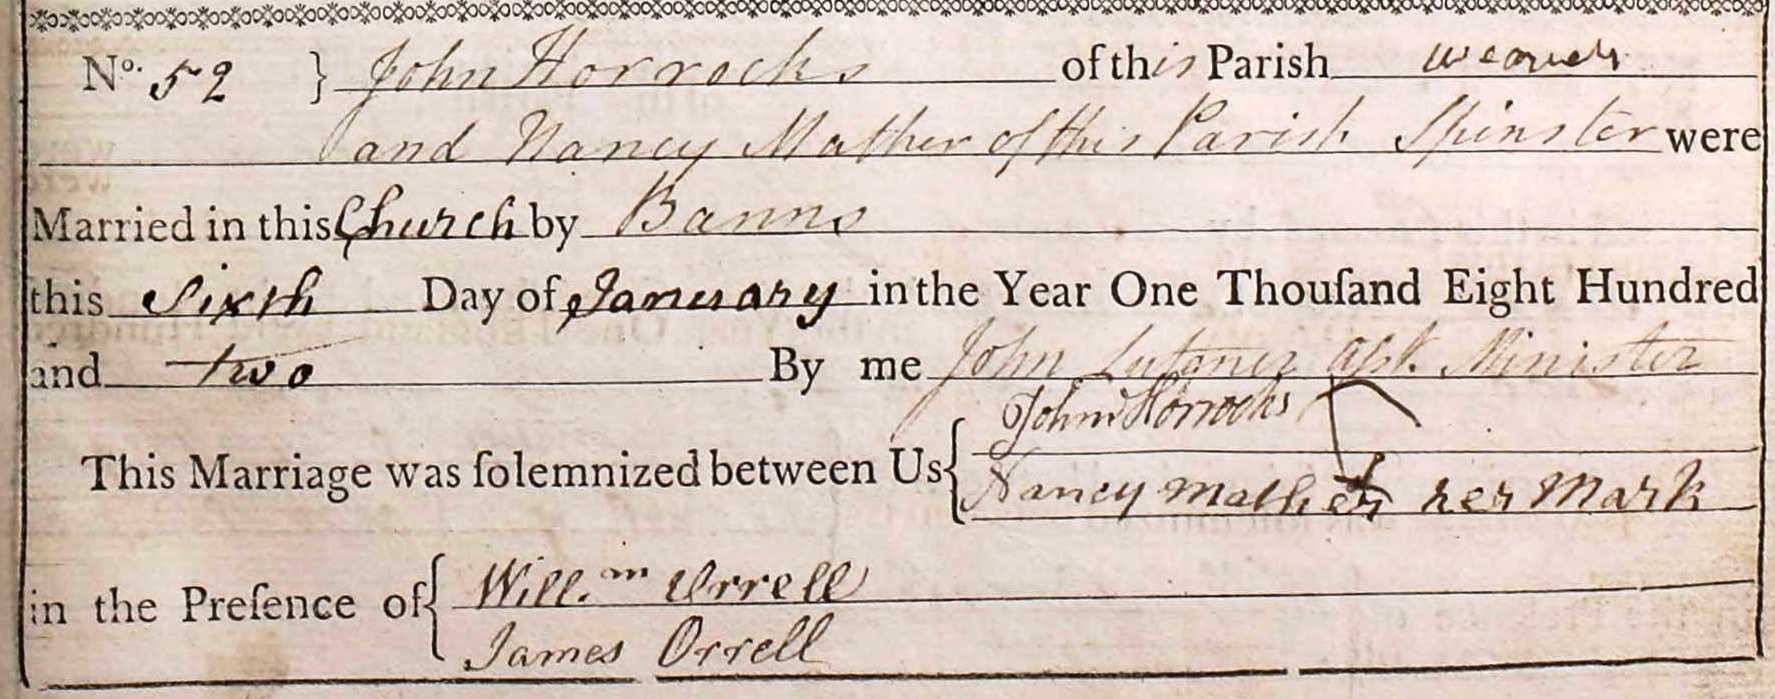 No. 52 } John Horrocks of this Parish weaver
and Nancy Mather of this Parish Spinster were
Married in this Church by Banns
this Sixth Day of January in the Year One Thouſand Eight Hundred
and two By me John Minister
John Horrocks
This Marriage was ſolemnized between Us {
Nancy Mather her Mark
in the Preſence of { Will.m Orrell
James Orrell